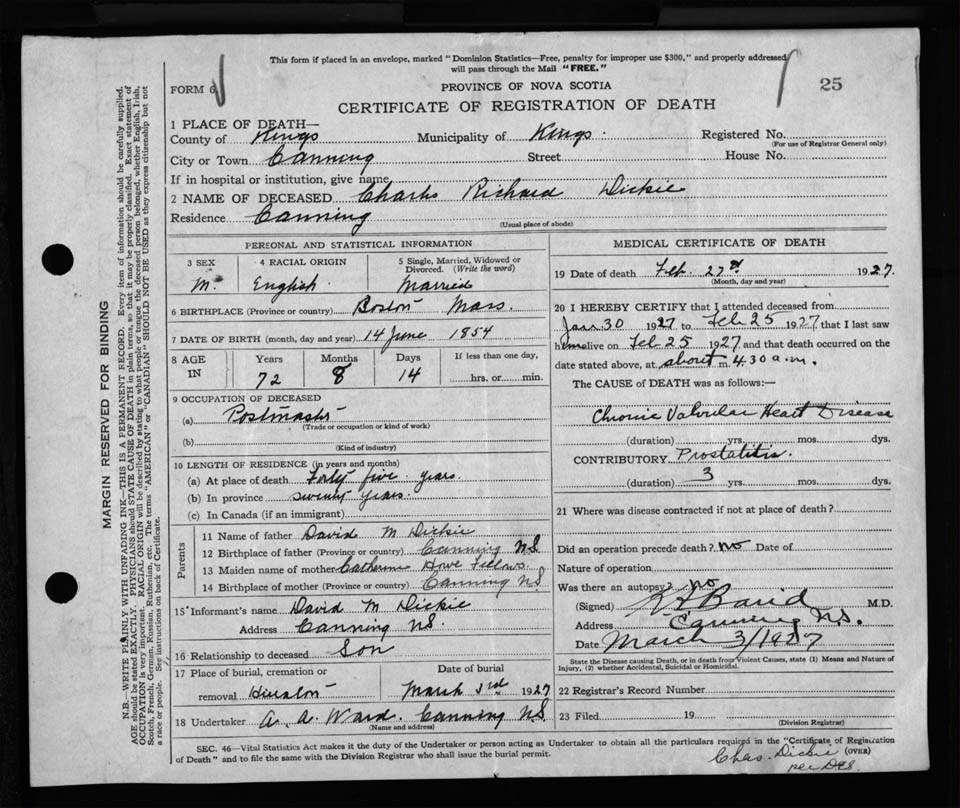 This form if placed in an envelope, marked "Dominion Statistics—Free, penalty for improper use $300," and properly addressed
will pass through the Mail "FREE."
FORM 6
PROVINCE OF NOVA SCOTIA
25
CERTIFICATE OF REGISTRATION OF DEATH
1 PLACE OF DEATH—
County of Kings Municipality of Kings. Registered No.
(For use of Registrar General only)
City or Town Canning Street House No.
If in hospital or institution, give name
2 NAME OF DECEASED Charles Richard Dickie
Residence Canning
(Usual place of abode)
PERSONAL AND STATISTICAL INFORMATION
3 SEX 4 RACIAL ORIGIN 5 Single, Married, Widowed or
Divorced. (Write the word)
M. English. Married
6 BIRTHPLACE (Province or country) Boston Mass.
7 DATE OF BIRTH (month, day and year) 14 June 1854
8 AGE IN Years Months Days If less than one day,
72 8 14 hrs. or min.
9 OCCUPATION OF DECEASED
(a) Postmaster
(Trade or occupation or kind of work)
(b)
(Kind of industry)
10 LENGTH OF RESIDENCE (in years and months)
(a) At place of death Forty five years
(b) In province seventy years
(c) In Canada (if an immigrant)
Parents
11 Name of father David M Dickie
12 Birthplace of father (Province or country) Canning N.S.
13 Maiden name of mother Catherine Howe Fellows.
14 Birthplace of mother (Province or country) Canning NS
15 Informant's name David M Dickie
Address Canning NS.
16 Relationship to deceased Son
17 Place of burial, cremation or Date of burial
removal March 3rd 1927
18 Undertaker A. A. Ward. Canning N.S.
(Name and address)
MEDICAL CERTIFICATE OF DEATH
19 Date of death Feb. 27th 1927.
(Month, day and year)
20 I HEREBY CERTIFY that I attended deceased from
Jan 30 1927 to Feb 25 1927 that I last saw
him alive on Feb 25 1927 and that death occurred on
date stated above, at about m. 4.30 a.m.
The CAUSE OF DEATH was as follows:—
Chronic Valvular Heart Disease
(duration) yrs. mos. dys.
CONTRIBUTORY Prostatitis.
(duration) 3 yrs. mos. dys.
21 Where was disease contracted if not at place of death?
Did an operation precede death? no Date of
Nature of operation
Was there an autopsy? no
(Signed) M.D.
Address Canning N.S.
Date March 3/1927
State the Disease causing Death, or in death from Violent Causes, state (1) Means and Nature of
Injury, (2) whether Accidental, Suicidal or Homicidal.
22 Registrar's Record Number
23 Filed 19
(Division Registrar)
SEC. 46—Vital Statistics Act makes it the duty of the Undertaker or person acting as Undertaker to obtain all the particulars required in the "Certificate of Registration
of Death" and to file the same with the Division Registrar who shall issue the burial permit.
(OVER)
Chas. Dickie
per
MARGIN RESERVED FOR BINDING
N.B.—WRITE PLAINLY WITH UNFADING INK—THIS IS A PERMANENT RECORD. Every item of information should be carefully supplied.
AGE should be stated EXACTLY. PHYSICIANS should STATE CAUSE OF DEATH in plain terms, so that it may be properly classified. Exact statement of
OCCUPATION is very important. RACIAL ORIGIN will be described by stating to what people or tongue the deceased person belonged, whether English, Irish,
Scotch, French, German, Russian, Ruthenian, etc. The terms "AMERICAN" or "CANADIAN" SHOULD NOT BE USED as they express citizenship but not
a race or people. See instructions on back of Certificate.